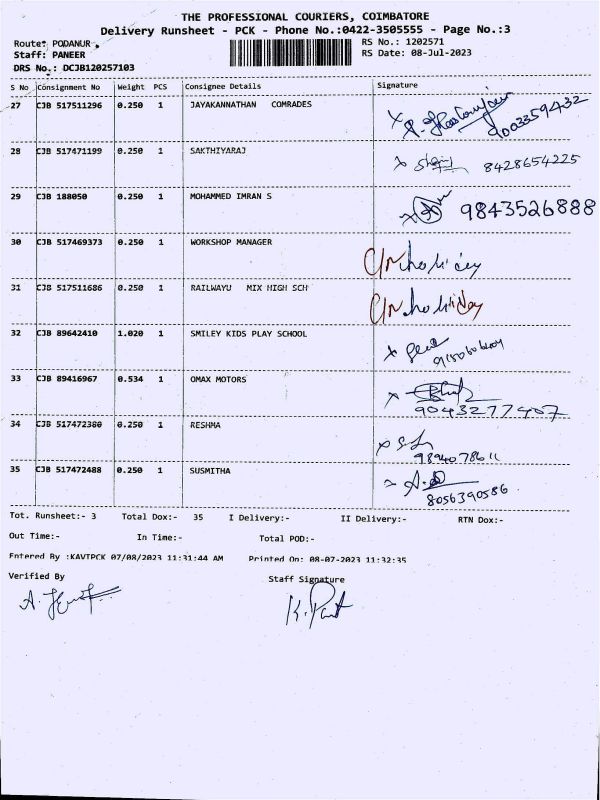 THE PROFESSIONAL COURIERS, COIMBATORE
Delivery Runsheet - PCK - Phone No.:0422-3505555 - Page No.:3
Route: PODANUR
RS No.: 1202571
Staff: PANEER
RS Date: 08-Jul-2023
DRS No.: DCJB120257103
S No Consignment No Weight PCS Consignee Details Signature
27 CJB 517511296 0.250 1 JAYAKANNATHAN COMRADES
9003359432
28 CJB 517471199 0.250 1 SAKTHIYARAJ 8428654225
29 CJB 188050 0.250 1 MOHAMMED IMRAN S 9843526888
30 CJB 517469373 0.250 1 WORKSHOP MANAGER
31 CJB 517511686 0.250 1 RAILWAYU MIX HIGH SCH
32 CJB 89642410 1.020 1 SMILEY KIDS PLAY SCHOOL
33 CJB 89416967 0.534 1 OMAX MOTORS
9043277407
34 CJB 517472380 0.250 1 RESHMA
9894078611
35 CJB 517472488 0.250 1 SUSMITHA
8056390586
Tot. Runsheet:- 3 Total Dox:- 35 I Delivery:- II Delivery:- RTN Dox:-
Out Time:- In Time:- Total POD:-
Entered By :KAVTPCK 07/08/2023 11:31:44 AM Printed On: 08-07-2023 11:32:35
Verified By Staff Signature